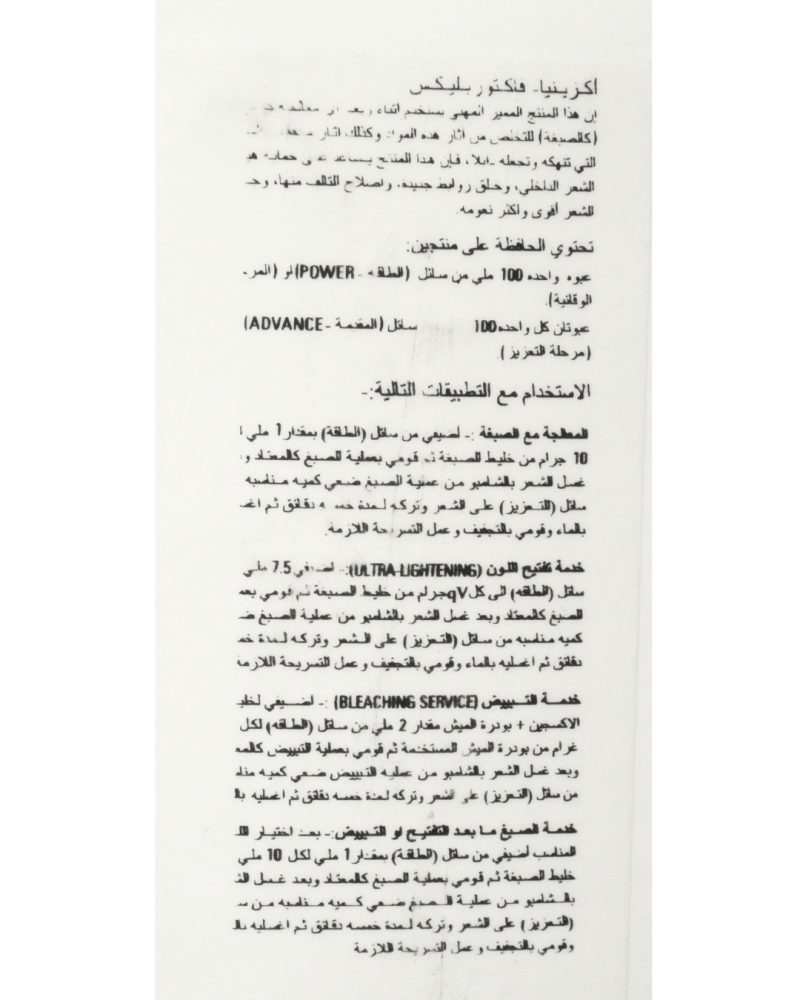 اكزينيا- فاكتور بليكس
إن هذا المنتج المميز المهني يستخدم اثناء وبعد
(كالصبغة) للتخلص من آثار هذه المواد وكذلك آثار
التي تنهكه وتجعله ذابلا، فإن هذا المنتج يساعد على حماية
الشعر الداخلي، وخلق روابط جديدة، واصلاح التالف منها،
للشعر أقوى واكثر نعومه.
تحتوي الحافظة على منتجين:
عبوه واحده 100 ملي من سائل (الطاقه - POWER) او (
الوقائية).
عبوتان كل واحده 100 سائل (المقدمة - ADVANCE)
(مرحلة التعزيز).
الاستخدام مع التطبيقات التالية:-
المعالجة مع الصبغة :- اضيفي من سائل (الطاقة) بمقدار 1 ملي
10 جرام من خليط الصبغة ثم قومي بعملية الصبغ كالمعتاد
غسل الشعر بالشامبو من عملية الصبغ ضعي كميه مناسبه
سائل (التعزيز) على الشعر وتركه لمدة خمسه دقائق ثم
بالماء وقومي بالتجفيف وعمل التسريحة اللازمه.
خدمة تفتيح اللون (ULTRA-LIGHTENING):- اضيفي 7.5 ملي
سائل (الطاقه) الى كل qV جرام من خليط الصبغة ثم قومي
الصبغ كالمعتاد وبعد غسل الشعر بالشامبو من عملية الصبغ
كميه مناسبه من سائل (التعزيز) على الشعر وتركه لمدة
دقائق ثم اغسليه بالماء وقومي بالتجفيف وعمل التسريحة اللازمة
خدمــة التــبييض (BLEACHING SERVICE) :- اضــيفي
الاكسجين + بودرة الميش مقدار 2 ملي من سائل (الطاقه) لكل
غرام من بودرة الميش المستخدمة ثم قومي بعملية التبييض
وبعد غسل الشعر بالشامبو من عمليه التبييض ضعي كميه
من سائل (التعزيز) على الشعر وتركه لمدة خمسه دقائق ثم اغسليه
خدمة الصبغ ما بعد التفتيح او التبييض:- بعد اختيار
المناسب أضيفي من سائل (الطاقة) بمقدار 1 ملي لكل 10 ملي
خليط الصبغة ثم قومي بعملية الصبغ كالمعتاد وبعد غسل
بالشامبو من عملية الصبغ ضعي كميه مناسبه من
(التعزيز) على الشعر وتركه لمدة خمسه دقائق ثم اغسليه
وقومي بالتجفيف وعمل التسريحة اللازمة